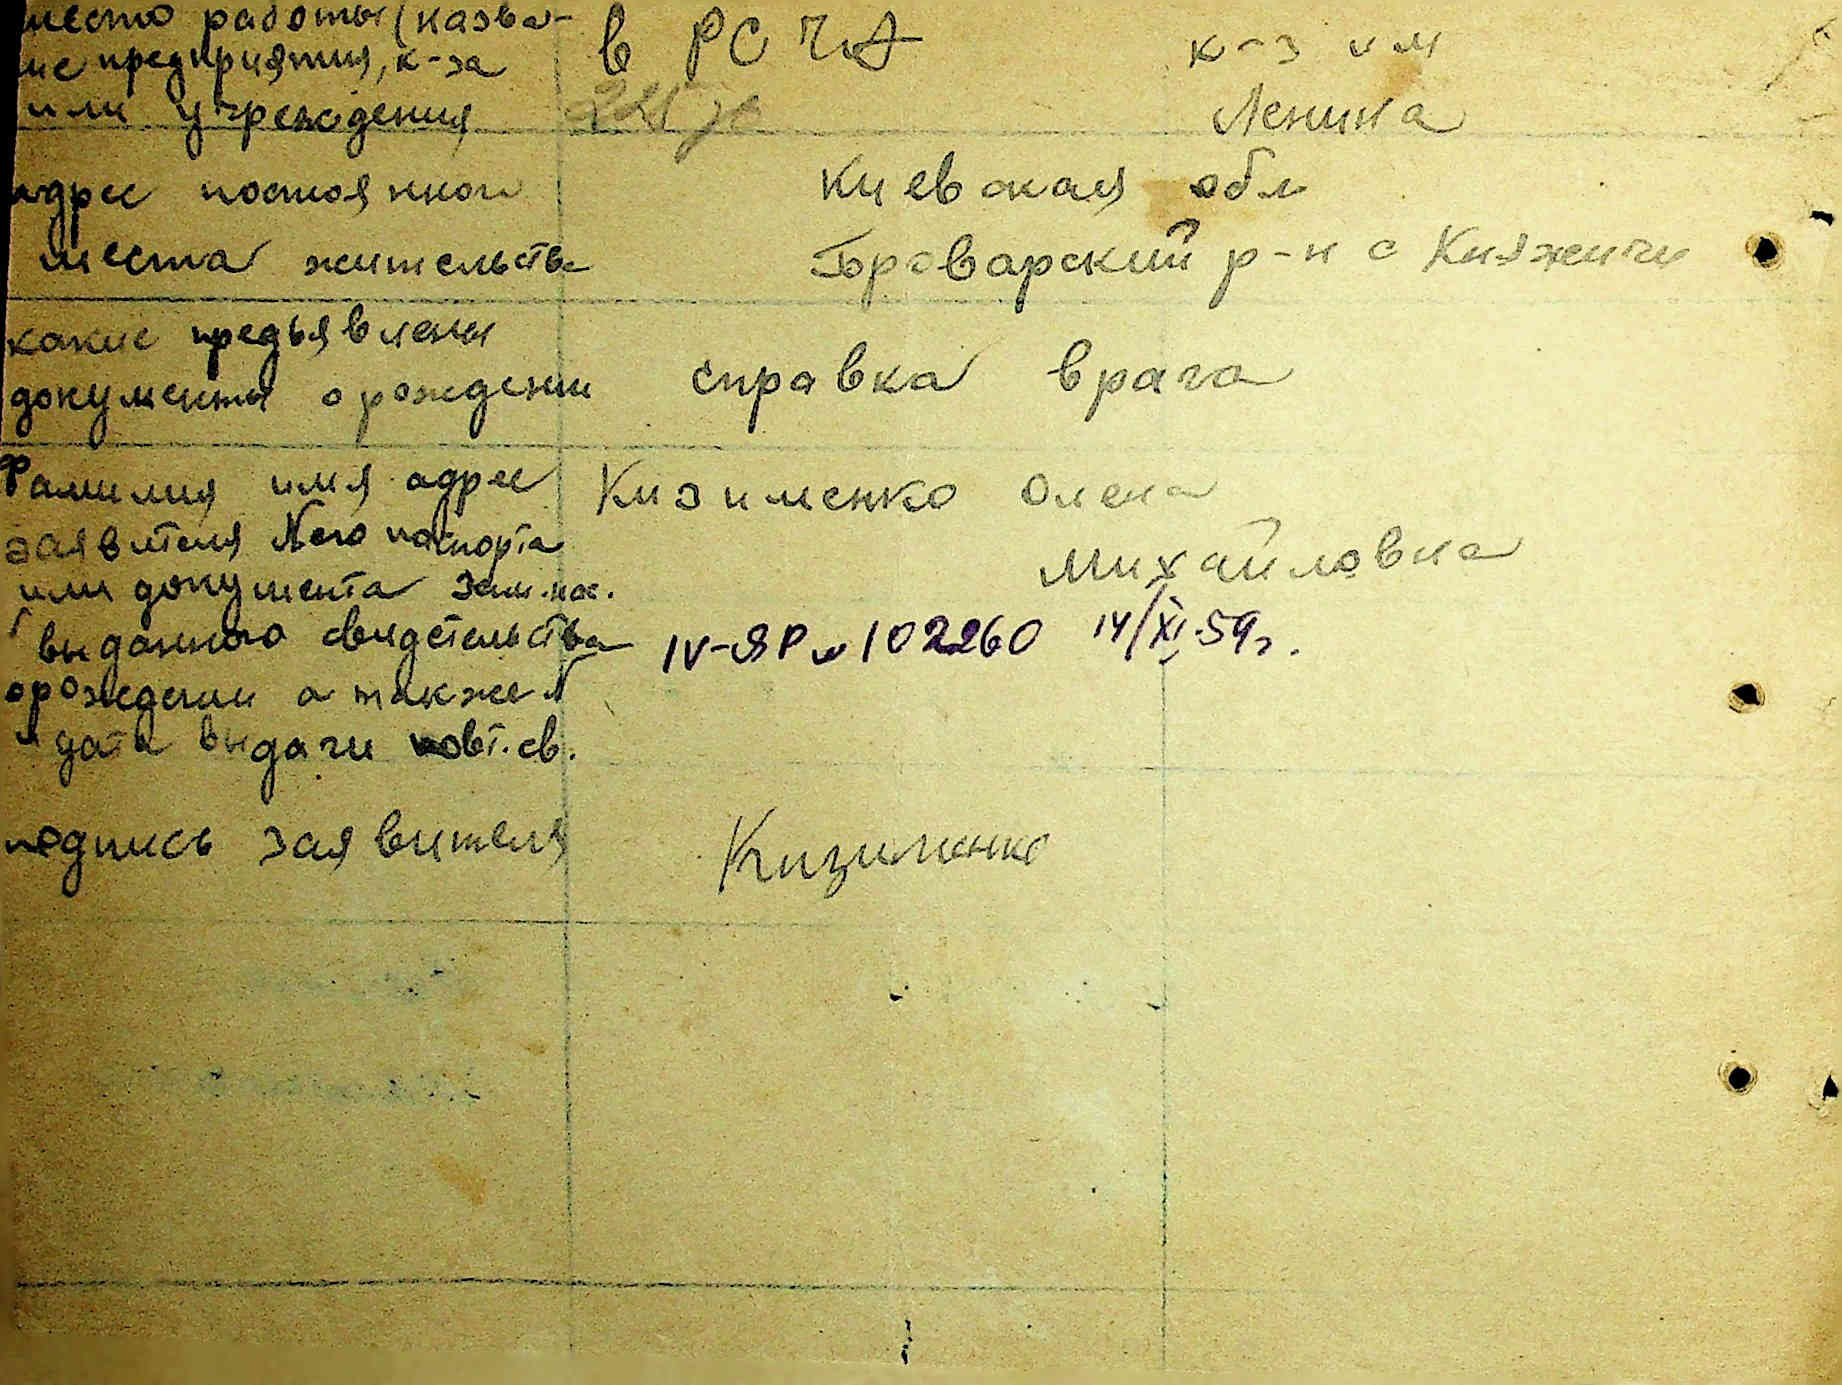 место работы (назва-
ие предприятия, к-за
или учреждения
в РСЧА
к-з им
Ленина
адрес постоянного
места жительства
Киевская обл
Броварский р-н с Княжичи
какие предъявлены
документы о рождении
справка врача
Фамилия имя адрес
заявителя № его паспорта
или документа зам. пас.
выданного свидетельства
о рождении а также №
и дата выдачи повт. св.
Кизименко Олена
Михайловна
IV-ЯР № 102260 14/XI-59г.
подпись заявителя
Кизименко